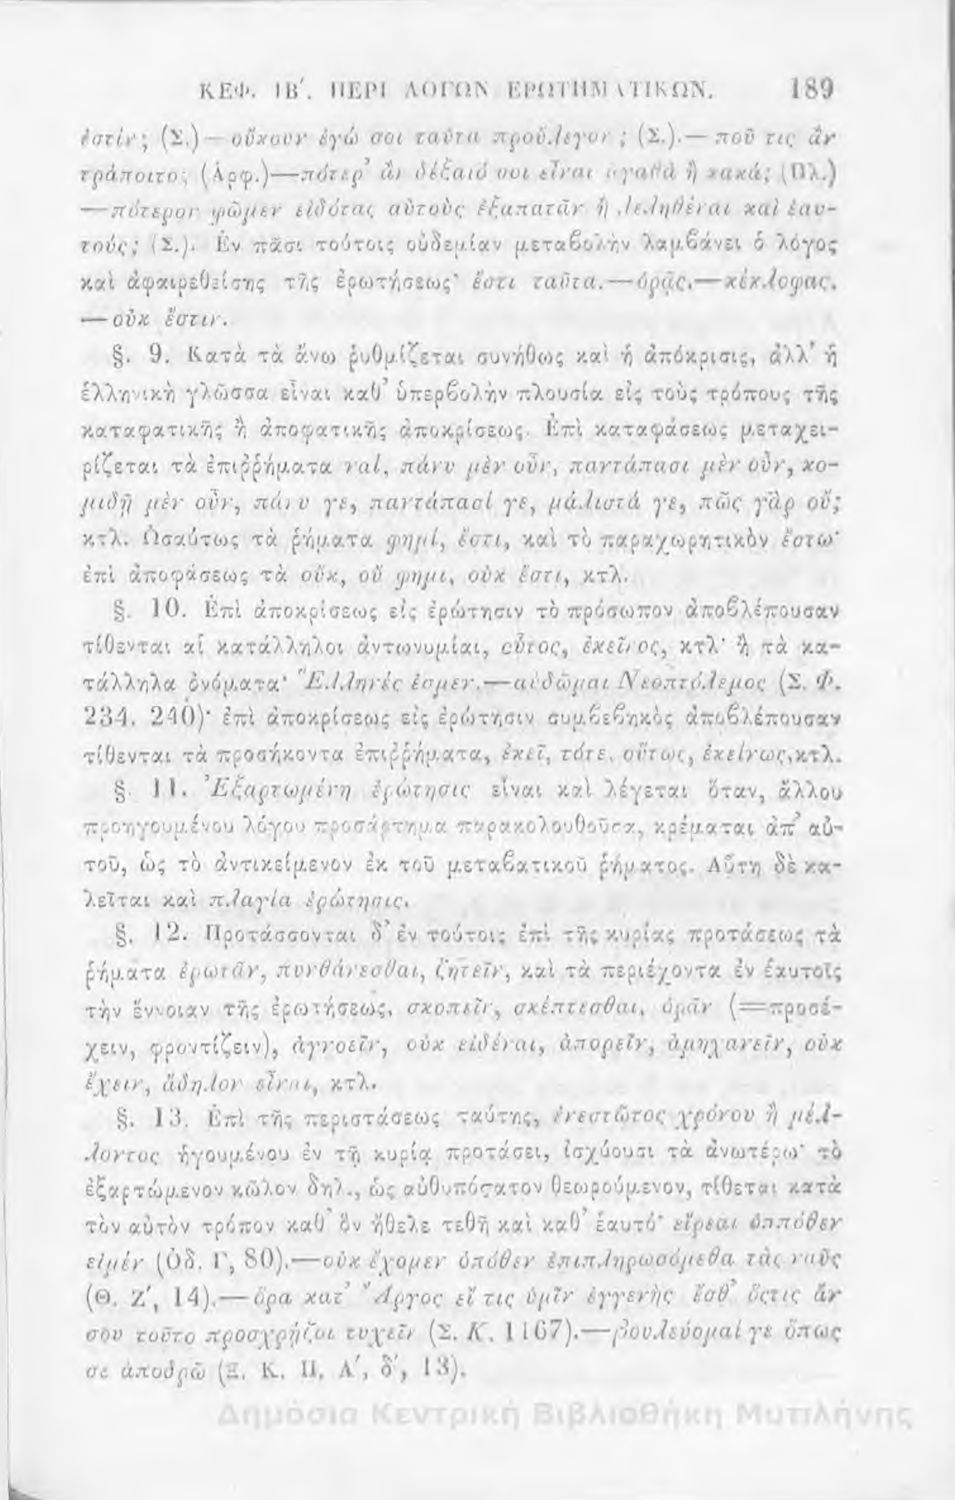 ΚΕΦ. ΙΒ΄. ΠΕΡΙ ΛΟΓΩΝ ΕΡΩΤΗΜΑΤΙΚΩΝ. 189
ἐστίν; (Σ.)—οὔκουν ἐγώ σοι ταῦτα προὔλεγον; (Σ.).—ποῦ τις ἂν
τράποιτο; (Ἀρφ.)—πότερ᾽ ἂν δέξαιό σοι εἶναι ἀγαθὰ ἢ κακά; (Πλ.)
—πότερον φῶμεν εἰδότας αὐτοὺς ἐξαπατᾶν ἢ λεληθέναι καὶ ἑαυ-
τούς; (Σ.). Ἐν πᾶσι τούτοις οὐδεμίαν μεταβολὴν λαμβάνει ὁ λόγος
καὶ ἀφαιρεθείσης τῆς ἐρωτήσεως· ἔστι ταῦτα.—ὁρᾷς.—κέκλοφας.
—οὐκ ἔστιν.
§. 9. Κατὰ τὰ ἄνω ῥυθμίζεται συνήθως καὶ ἡ ἀπόκρισις, ἀλλ᾽ ἡ
ἑλληνικὴ γλῶσσα εἶναι καθ᾽ ὑπερβολὴν πλουσία εἰς τοὺς τρόπους τῆς
καταφατικῆς ἢ ἀποφατικῆς ἀποκρίσεως. Ἐπὶ καταφάσεως μεταχει-
ρίζεται τὰ ἐπιῤῥήματα ναί, πάνυ μὲν οὖν, παντάπασι μὲν οὖν, κο-
μιδῇ μὲν οὖν, πάνυ γε, παντάπασί γε, μάλιστά γε, πῶς γὰρ οὔ;
κτλ. Ὡσαύτως τὰ ῥήματα φημί, ἔστι, καὶ τὸ παραχωρητικὸν ἔστω·
ἐπὶ ἀποφάσεως τὰ οὔκ, οὔ φημι, οὐκ ἔστι, κτλ.
§. 10. Ἐπὶ ἀποκρίσεως εἰς ἐρώτησιν τὸ πρόσωπον ἀποβλέπουσαν
τίθενται αἱ κατάλληλοι ἀντωνυμίαι, οὗτος, ἐκεῖνος, κτλ· ἢ τὰ κα-
τάλληλα ὀνόματα· Ἕλληνές ἐσμεν.—αὐδῶμαι Νεοπτόλεμος (Σ. Φ.
234. 240)· ἐπὶ ἀποκρίσεως εἰς ἐρώτησιν συμβεβηκὸς ἀποβλέπουσαν
τίθενται τὰ προσήκοντα ἐπιῤῥήματα, ἐκεῖ, τότε, οὕτως, ἐκείνως,κτλ.
§. 11. Ἐξαρτωμένη ἐρώτησις εἶναι καὶ λέγεται ὅταν, ἄλλου
προηγουμένου λόγου προσάρτημα παρακολουθοῦσα, κρέμαται ἀπ᾽ αὐ-
τοῦ, ὡς τὸ ἀντικείμενον ἐκ τοῦ μεταβατικοῦ ῥήματος. Αὕτη δὲ κα-
λεῖται καὶ πλαγία ἐρώτησις.
§. 12. Προτάσσονται δ᾽ ἐν τούτοις ἐπὶ τῆς κυρίας προτάσεως τὰ
ῥήματα ἐρωτᾶν, πυνθάνεσθαι, ζητεῖν, καὶ τὰ περιέχοντα ἐν ἑαυτοῖς
τὴν ἔννοιαν τῆς ἐρωτήσεως, σκοπεῖν, σκέπτεσθαι, ὁρᾶν (=προσέ-
χειν, φροντίζειν), ἀγνοεῖν, οὐκ εἰδέναι, ἀπορεῖν, ἀμηχανεῖν, οὐκ
ἔχειν, ἄδηλον εἶναι, κτλ.
§. 13. Ἐπὶ τῆς περιστάσεως ταύτης, ἐνεστῶτος χρόνου ἢ μέλ-
λοντος ἡγουμένου ἐν τῇ κυρίᾳ προτάσει, ἰσχύουσι τὰ ἀνωτέρω· τὸ
ἐξαρτώμενον κῶλον δηλ., ὡς αὐθυπόστατον θεωρούμενον, τίθεται κατὰ
τὸν αὐτὸν τρόπον καθ᾽ ὃν ἤθελε τεθῆ καὶ καθ᾽ ἑαυτό· εἴρεαι ὁππόθεν
εἰμέν (Ὀδ. Γ, 80).—οὐκ ἔχομεν ὁπόθεν ἐπιπληρωσόμεθα τὰς ναῦς
(Θ. Ζ΄, 14).—ὅρα κατ᾽ Ἄργος εἴ τις ὑμῖν ἐγγενὴς ἔσθ᾽ ὅςτις ἄν
σου τοῦτο προσχρῄζοι τυχεῖν (Σ. Κ. 1167).—βουλεύομαί γε ὅπως
σε ἀποδρῶ (Ξ. Κ. Π. Α΄, δ΄, 13).
Δημόσια Κεντρική Βιβλιοθήκη Μυτιλήνης